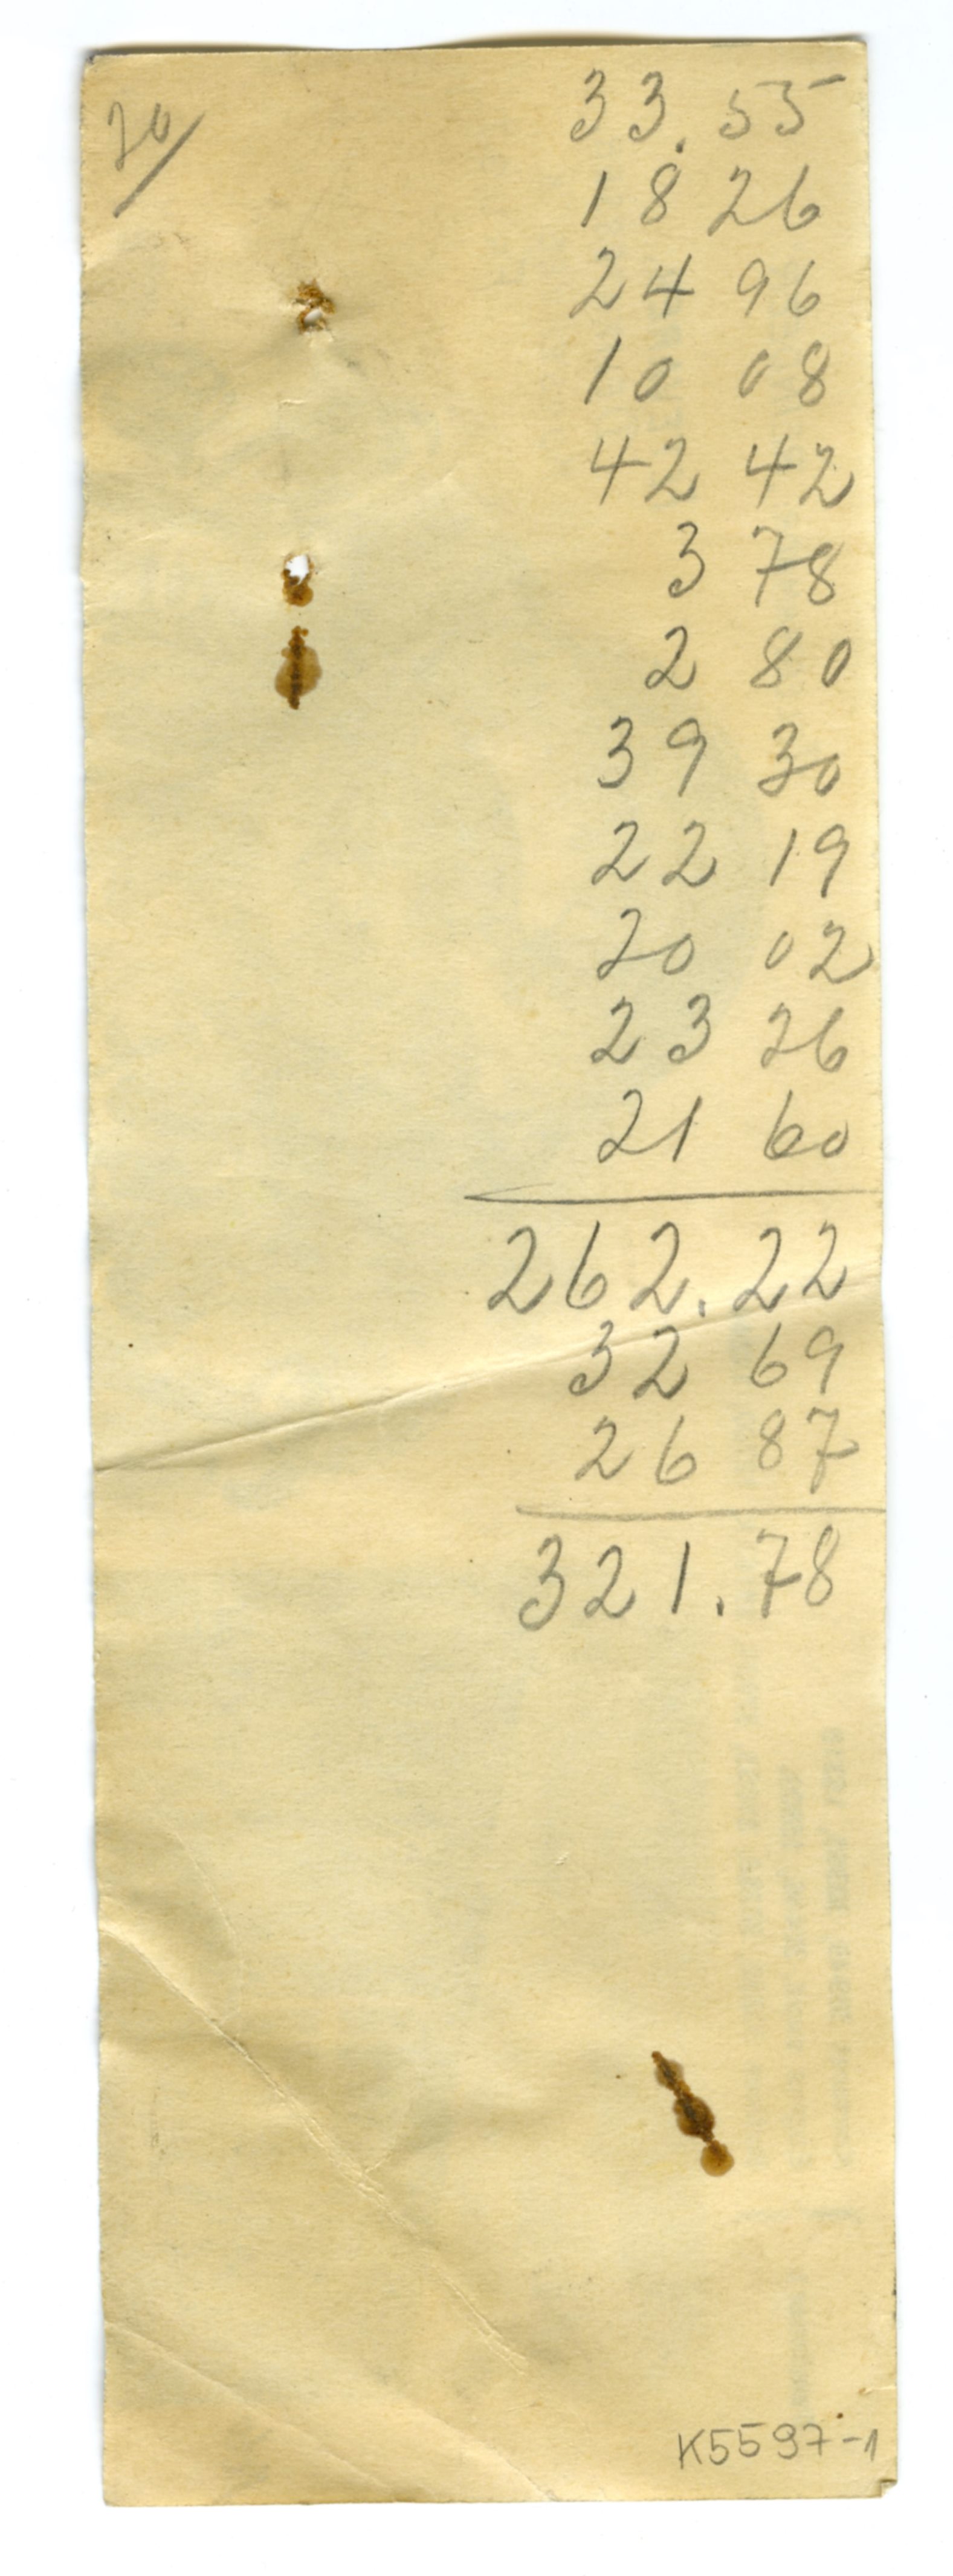 20/
33.55
18 26
24 96
10 08
42 42
3 78
2 80
39 30
22 19
20 02
23 26
21 60
262.22
32 69
26 87
321.78
K5597-1